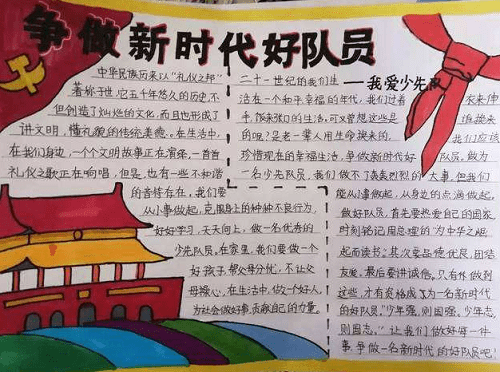 争做新时代好队员
——我爱少先队
中华民族历来以“礼仪之邦”
著称于世,它五十年悠久的历史,不
但创造了灿烂的文化,而且也形成了
讲文明,懂礼貌的传统美德。在生活中,
在我们身边,一个个文明故事正在演绎,一首首
礼仪之歌正在响唱,但是,也有一些不和谐
的音符存在,我们要
从小事做起,克服身上的种种不良行为,
好好学习,天天向上,做一名优秀的
少先队员,在家里,我们要做一个
好孩子,帮父母分忧,不让父
母操心,在生活中,做个好人,
为社会做好事,贡献自己的力量。
二十一世纪的我们生
活在一个和平幸福的年代,我们过着
衣来伸
手,饭来张口的生活,可又曾想这些是
谁换来
的呢?是老一辈人用生命换来的,
我们应该
珍惜现在的幸福生活,争做新时代好
队员,做为
一名少先队员,我们做不了轰轰烈烈的
大事,但我们
能从小事做起,从身边的点滴做起,
做好队员,首先要热爱自己的国家,
时刻铭记周总理的“为中华之崛
起而读书”;其次要品德优良,团结
友爱,最后要讲诚信,只有你做到
这些,才有资格成了为一名新时代
的好队员,“少年强,则国强。少年志,
则国志。”让我们做好每一件
事,争做一名新时代的好队员吧!